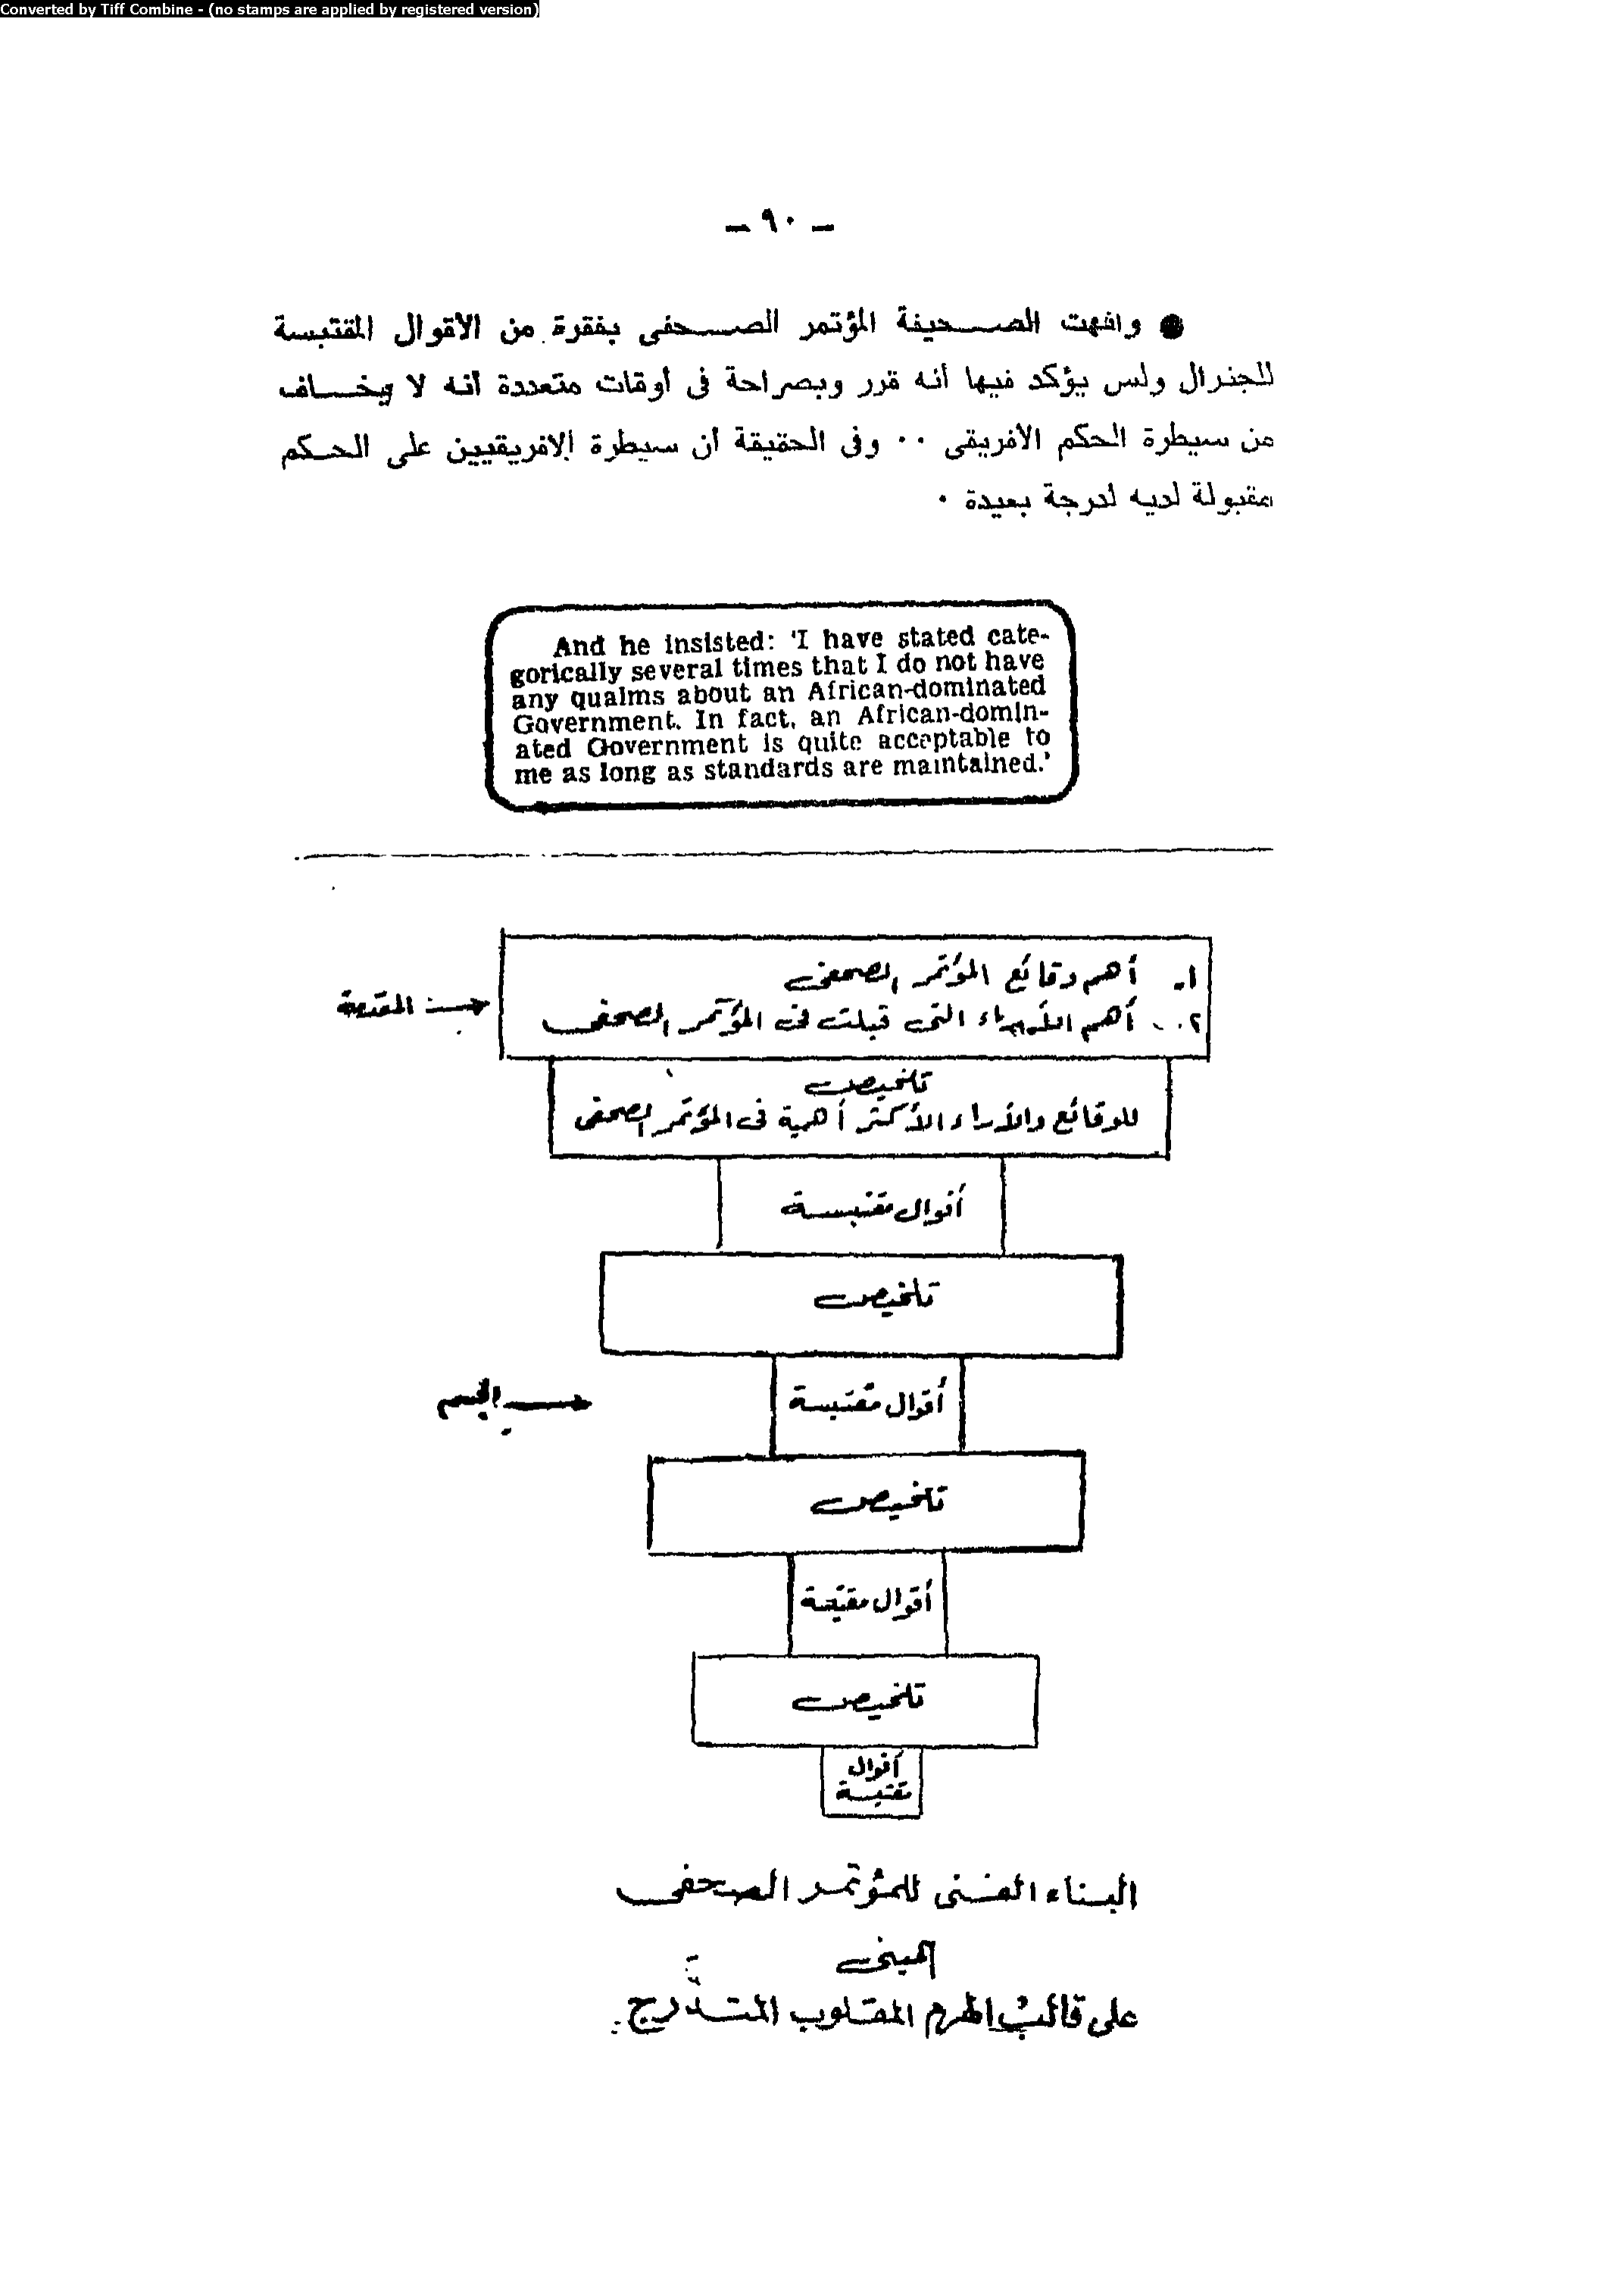 Converted by Tiff Combine - (no stamps are applied by registered version)
– ٩٠ –
● وانهت الصحيفة المؤتمر الصحفى بفقرة من الاقوال المقتبسة
للجنرال ولس يؤكد فيها أنه قرر وبصراحة فى أوقات متعددة أنه لا يخاف
من سيطرة الحكم الافريقى ٠٠ وفى الحقيقة أن سيطرة الافريقيين على الحكم
مقبولة لديه لدرجة بعيدة ٠
And he insisted: 'I have stated cate-
gorically several times that I do not have
any qualms about an African-dominated
Government. In fact, an African-domin-
ated Government is quite acceptable to
me as long as standards are maintained.'
١- أهم وقائع المؤتمر الصحفى
٢- أهم الأراء التى قيلت فى المؤتمر الصحفى
المقدمة
تلخيص
للوقائع والأراء الأكثر أهمية فى المؤتمر الصحفى
أقوال مقتبسة
تلخيص
أقوال مقتبسة
الجسم
تلخيص
أقوال مقتبسة
تلخيص
أقوال
مقتبسة
البناء الفنى للمؤتمر الصحفى
المبنى
على قالب الهرم المقلوب المتدرج